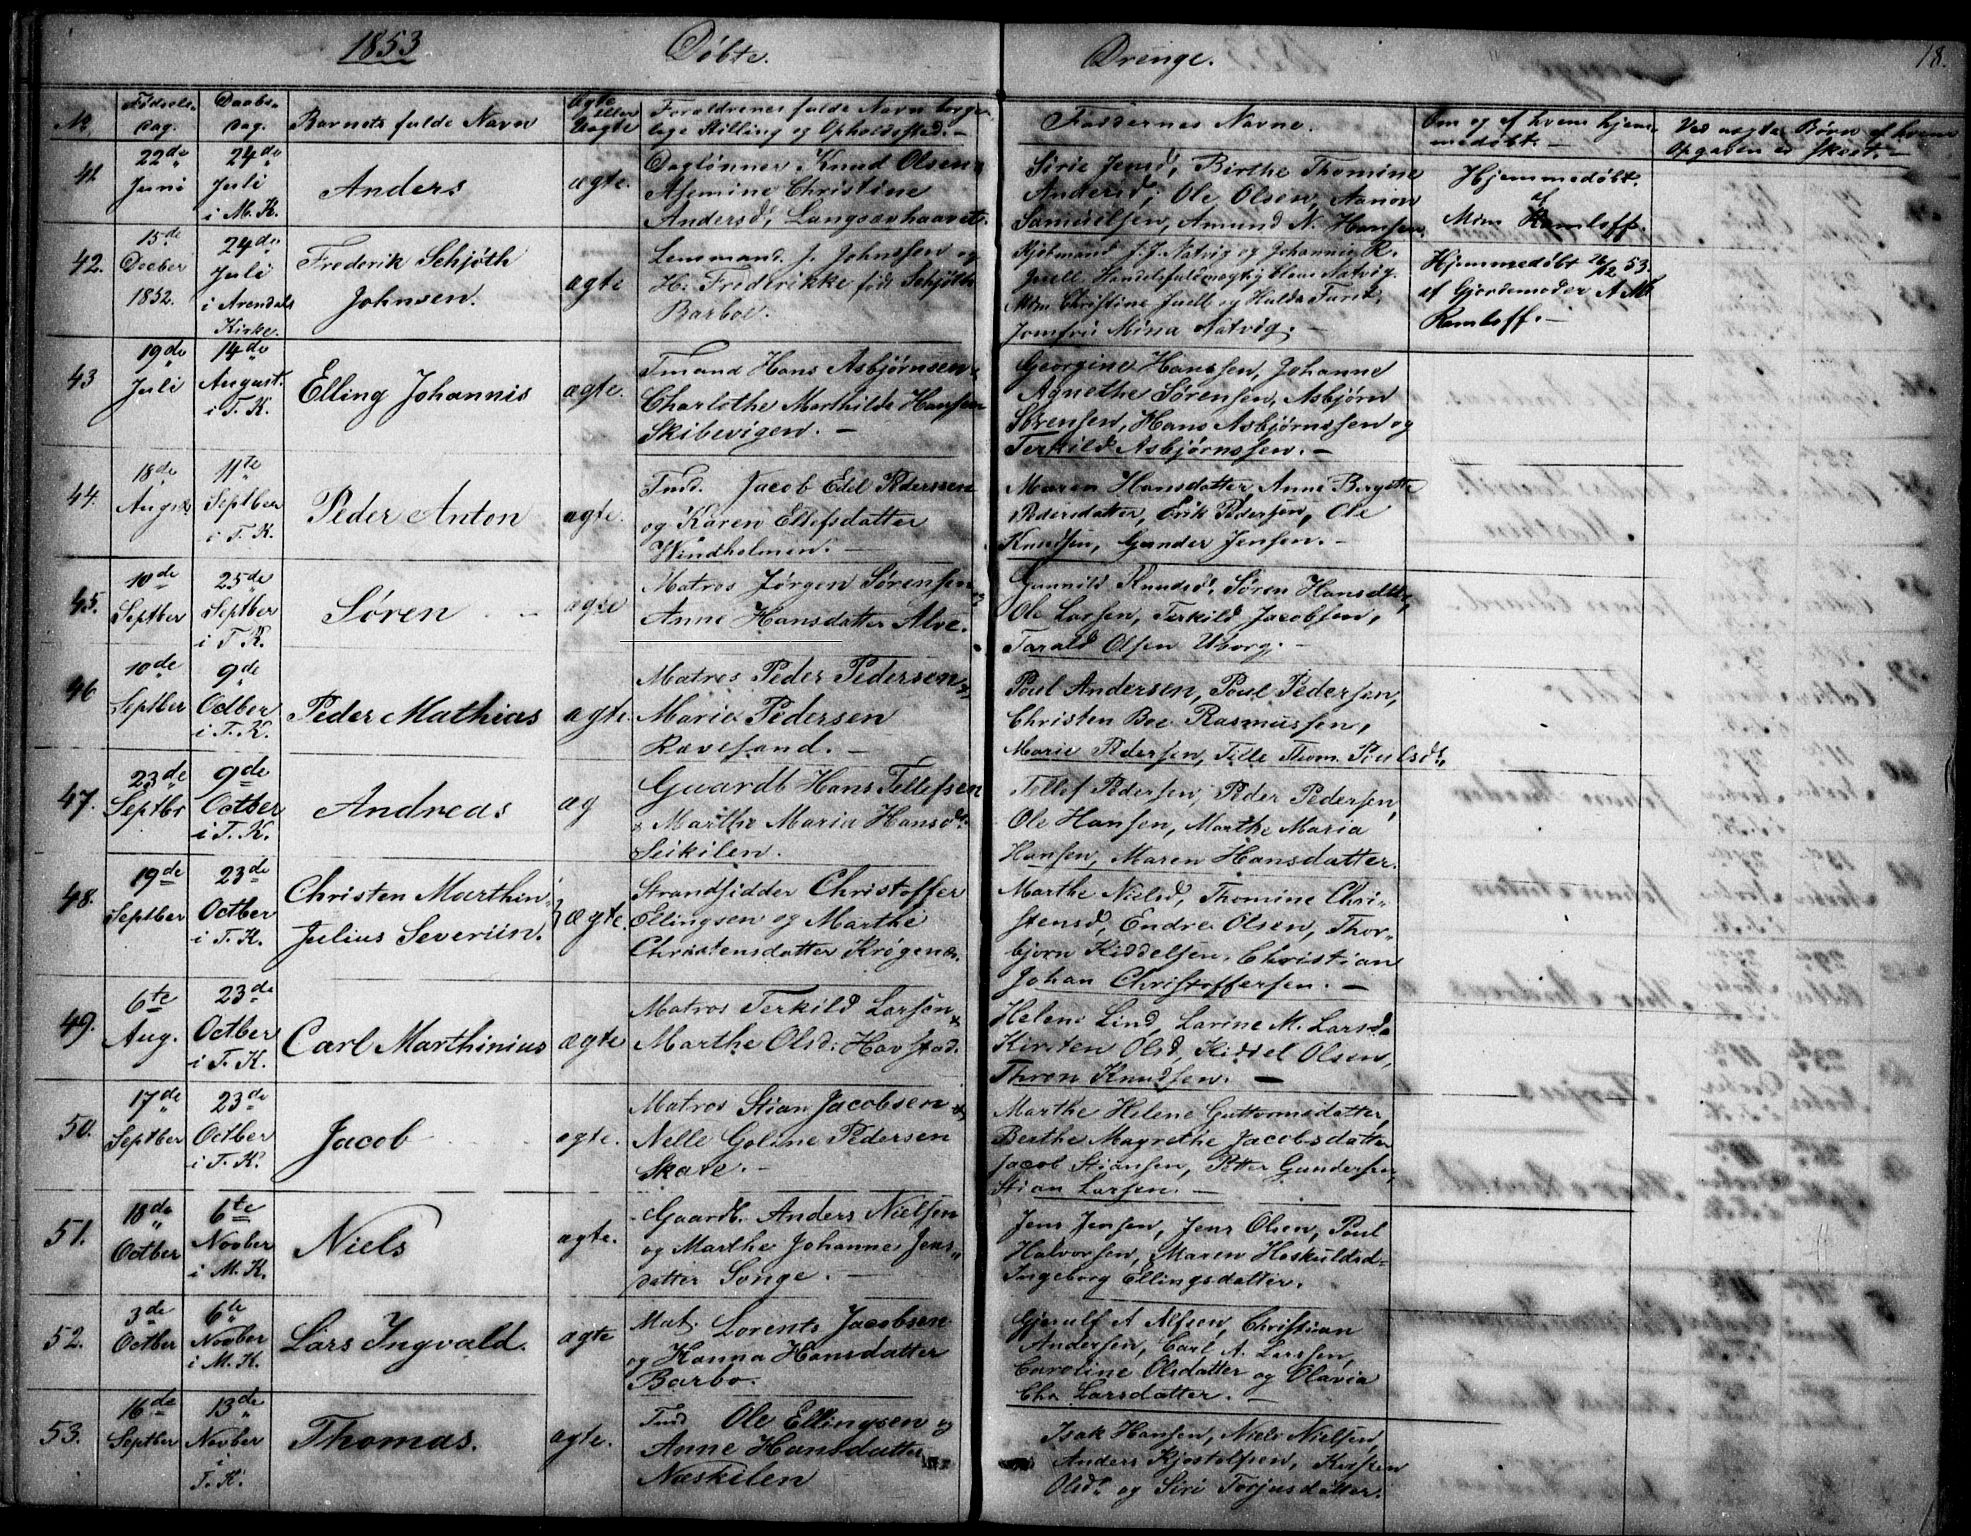 1853 Døbte. Drenge. 18.
No
Fødsels-
Dag.
Daabs-
Dag.
Barnets fulde Navn
Ægte
eller
Uægte
Forældrenes fulde Navn borger-
lige Stilling og Opholdssted.-
Faddernes Navne.
Om og af hvem hjem-
medøbt.-
Ved uægte Børn af hvem
Opgaven er skeet.-
41
22de
Juni
24de
Juli
i M. K.
Anders
ægte.
Daglønner Knud Olsen
Asemine Christine
Andersd, Langsævhaavet.
Sirie Jensd, Birthe Thomine
Andersd, Ole Olsen, Aanon
Samuelsen, Amund N. Hansen
Hjemmedøbt.
af
Mdm Ramloff.
42.
15de
Decber
1852.
24de
Juli
i Arendals
Kirke.
Frederik Schjøth
Johnsen.
ægte
Lensmand J. Johnsen og
H. Friderikke fød Schjøth
Barboe.
J. J. Natvig og Johannes R.
Juell Handelsfuldmægtig Natvig
Mdm Christine Juell og Hulda
Jomfru Mina Natvig.
Hjemmedøbt 53.
af Gjordemoder A. M.
Ramloff.-
43
19de
Juli
14de
August.
i T. K.
Elling Johannis
ægte.
Tmand Hans Asbjørnsen
Charlothe Marthilde Hansen
Skibevigen. -
Georgine Hanssen, Johanne
Agnethe Sørensen, Asbjørn
Sørensen, Hans Asbjørnssen og
Terkild Asbjørnssen. -
44.
18de
August
11te
Septber
i T. K.
Peder Anton
ægte.
Tmd. Jacob Edel Pederssen
og Karen Ellefsdatter
Windholmen. -
Maren Hansdatter, Anne Birgitte
Pedersdatter, Erik Pedersen, Ole
Knudsen, Gunder Jensen. -
45.
10de
Septber
25de
Septber
i T. K.
Søren
ægte
Matros Jørgen Sørensen
Anne Hansdatter Alve.
Gunnild Knudsd, Søren Hansdtr,
Ole Larsen, Terkild Jacobsen,
Tarald Olsen Uborg. -
46
10de
Septber
9de
Octber
i T. K.
Peder Mathias
ægte.
Matros Peder Pedersen
Maria Pedersen
Rævesand. -
Poul Andersen, Poul Pedersen,
Christen Boe Rasmussen,
Marie Pedersen, Tille Thom. Poulsd.
47.
23de
Septbr
9de
Octber
i T. K.
Andreas
æg
Gaardb Hans Tellefsen
& Marthe Maria Hansd.
Seikilen.
Tellef Pedersen, Peder Pedersen,
Ole Hansen, Marthe Maria
Hansen, Maren Hansdatter.
48.
19de
Septber
23de
Octber
i T. K.
Christen Marthin
Julius Severiin.
ægte.
Strandsidder Christoffer
Ellingsen og Marthe
Christensdatter Krøgenæs.
Marthe Nielsd, Thomine Chri-
stensd, Endre Olsen, Thor-
bjørn Kiddelsen, Christian
Johan Christoffersen. -
49.
6te
Aug.
23de
Octber
i T. K.
Carl Marthinius
ægte
Matros Terkild Larsen
Marthe Olsd. Havstad.
Helene Lind, Larine M. Larsd
Kirsten Olsd, Kiddel Olsen,
Thron Knudsen. -
50.
17de
Septber
23de
Octber
i T. K.
Jacob
ægte.
Matros Stian Jacobsen &
Nelle Goline Pedersen
Skare. -
Marthe Helene Guttormsdatter,
Berthe Magrethe Jacobsdatter
Jacob Stiansen, Petter Gundersen,
Stian Larsen. -
51.
18de
Octber
6te
Novber
i M. K.
Niels
ægte.
Gaardb. Anders Nielsen
og Marthe Johanne Jens-
datter Songe. -
Jens Jensen, Jens Olsen, Poul
Halvorsen, Maren Hoskuldsd-
Ingeborg Ellingsdatter.
52.
3de
Octber
6te
Novber
i M. K.
Lars Ingvald.
ægte
Mat. Lorents Jacobsen
og Hanna Hansdatter
Barbo.
Gjerulf A Alfsen, Christian
Andersen, Carl A. Larssen,
Caroline Olsdatter og Olavia
Chr. Larsdatter. -
53.
16de
Septber
13de
Novber
i
T. K.
Thomas.
ægte.
Tmd Ole Ellingsen og
Anne Hansdatter
Næskilen
Isak Hansen, Niels Nielsen,
Anders Kjøstolfsen, Kirsten
Olsd. og Siri Torjusdatter.